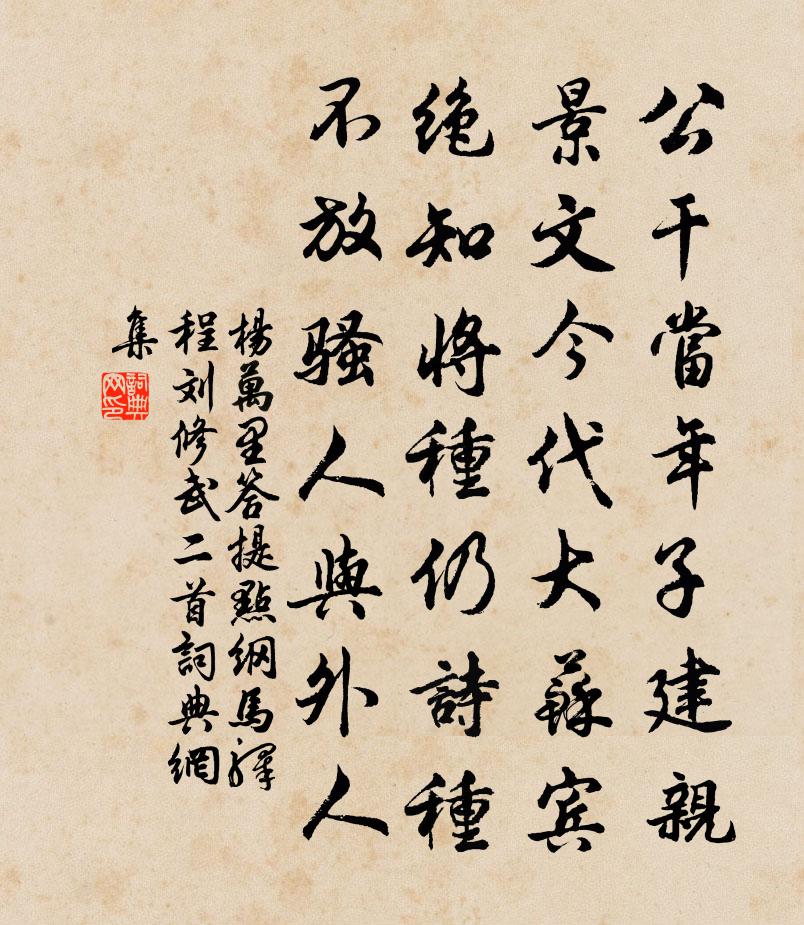 公干當年子建親
景文今代大蘇賓
绝知將種仍詩種
不放騷人與外人
楊萬里答提點綱馬驛
程刘修武二首詞典網
集
詞典
网印